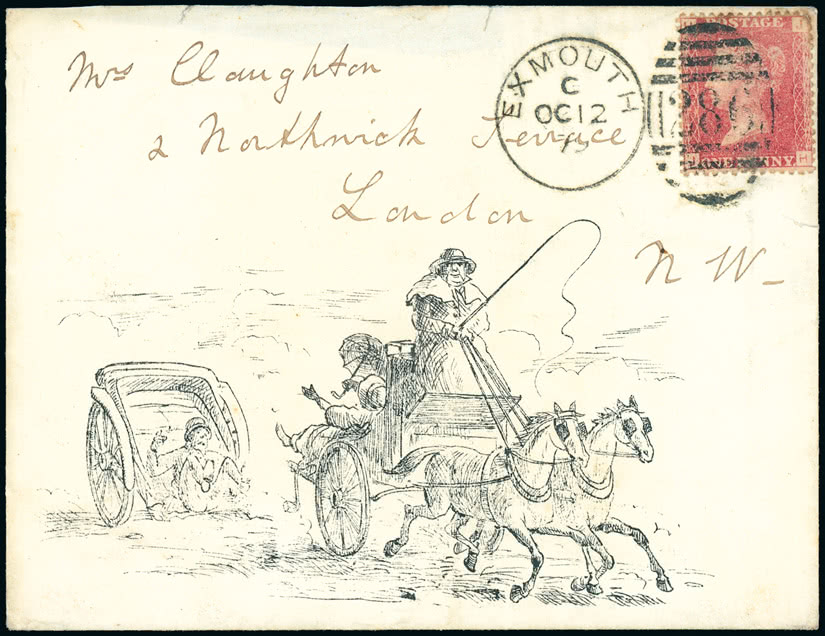 Mrs Claughton
2 Northwick Terrace
London
N W-
EXMOUTH
C
OC 12
75
POSTAGE
286
ONE PENNY